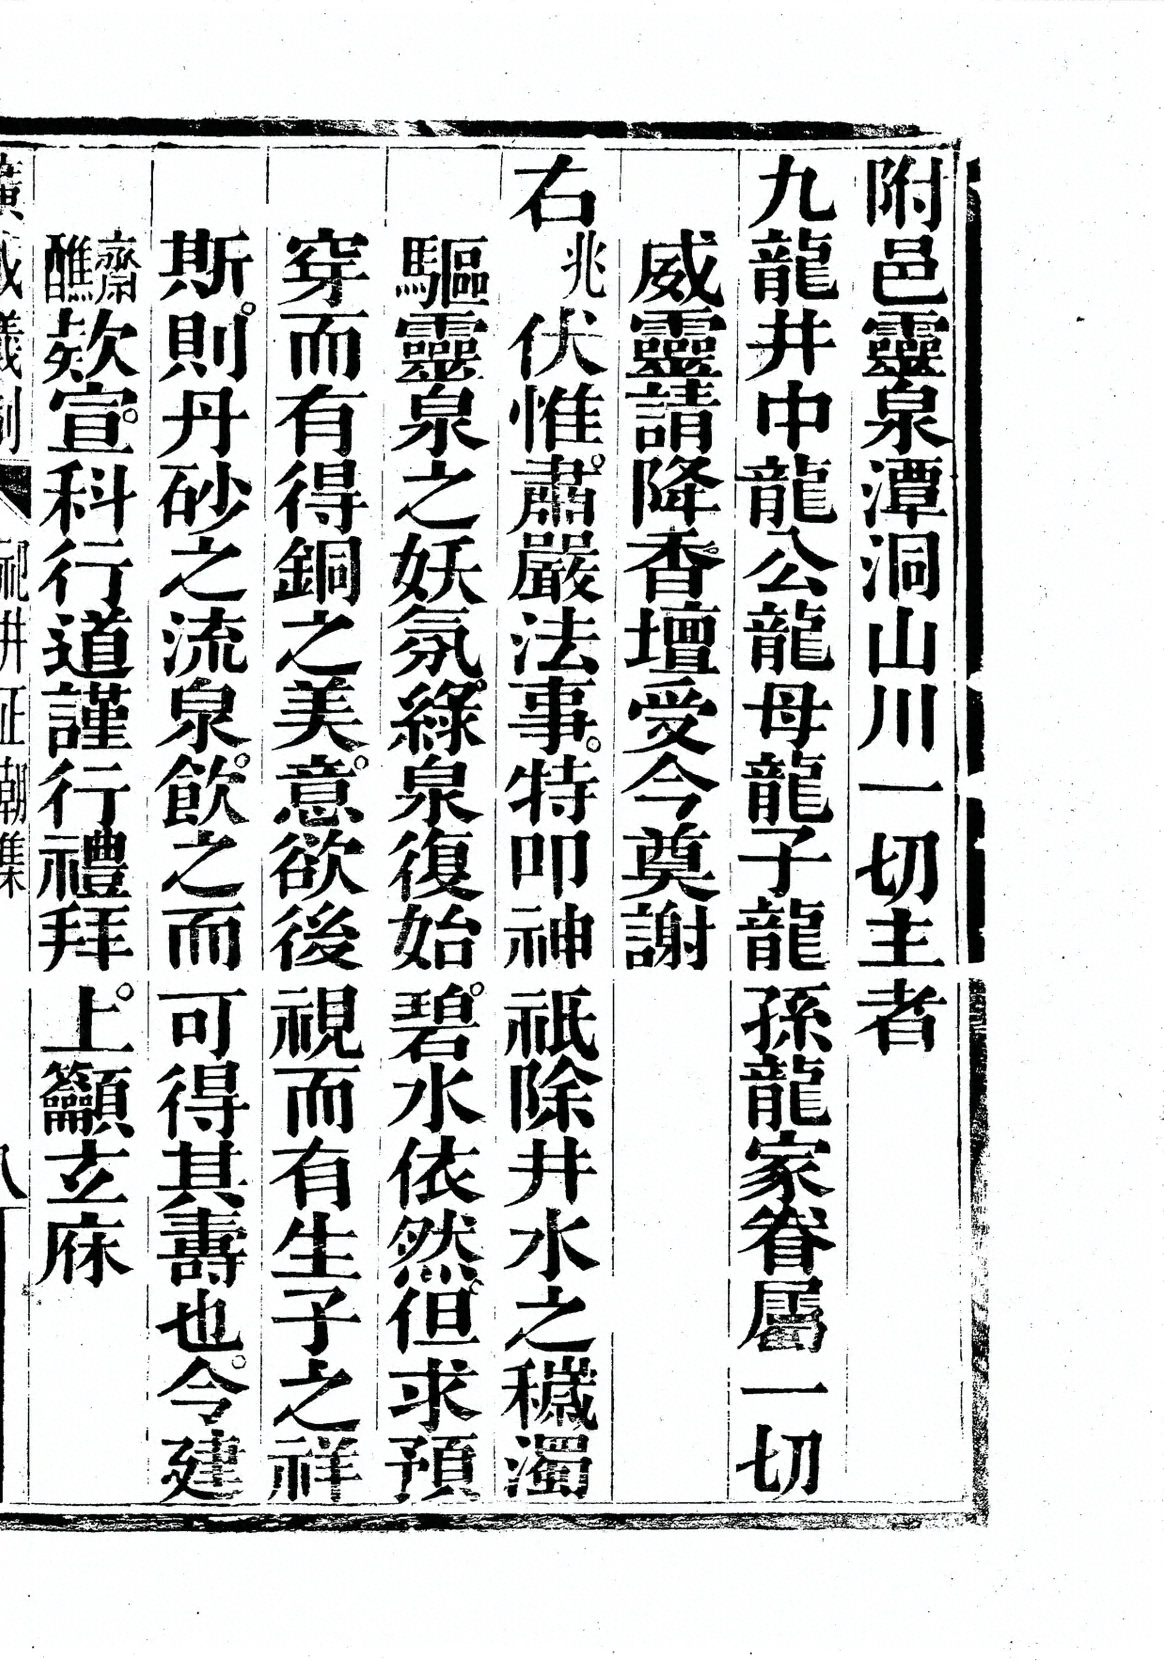 附邑靈泉潭洞山川一切主者
九龍井中龍公龍母龍子龍孫龍家眷屬一切
威靈請降香壇受今奠謝
右兆伏惟肅嚴法事特叩神祇除井水之穢濁
驅靈泉之妖氛綠泉復始碧水依然但求預
穿而有得銅之美意欲後視而有生子之祥
斯則丹砂之流泉飲之而可得其壽也今建
齋醮欵宣科行道謹行禮拜上籲玄庥
廣成儀制 祀井正朝集 八